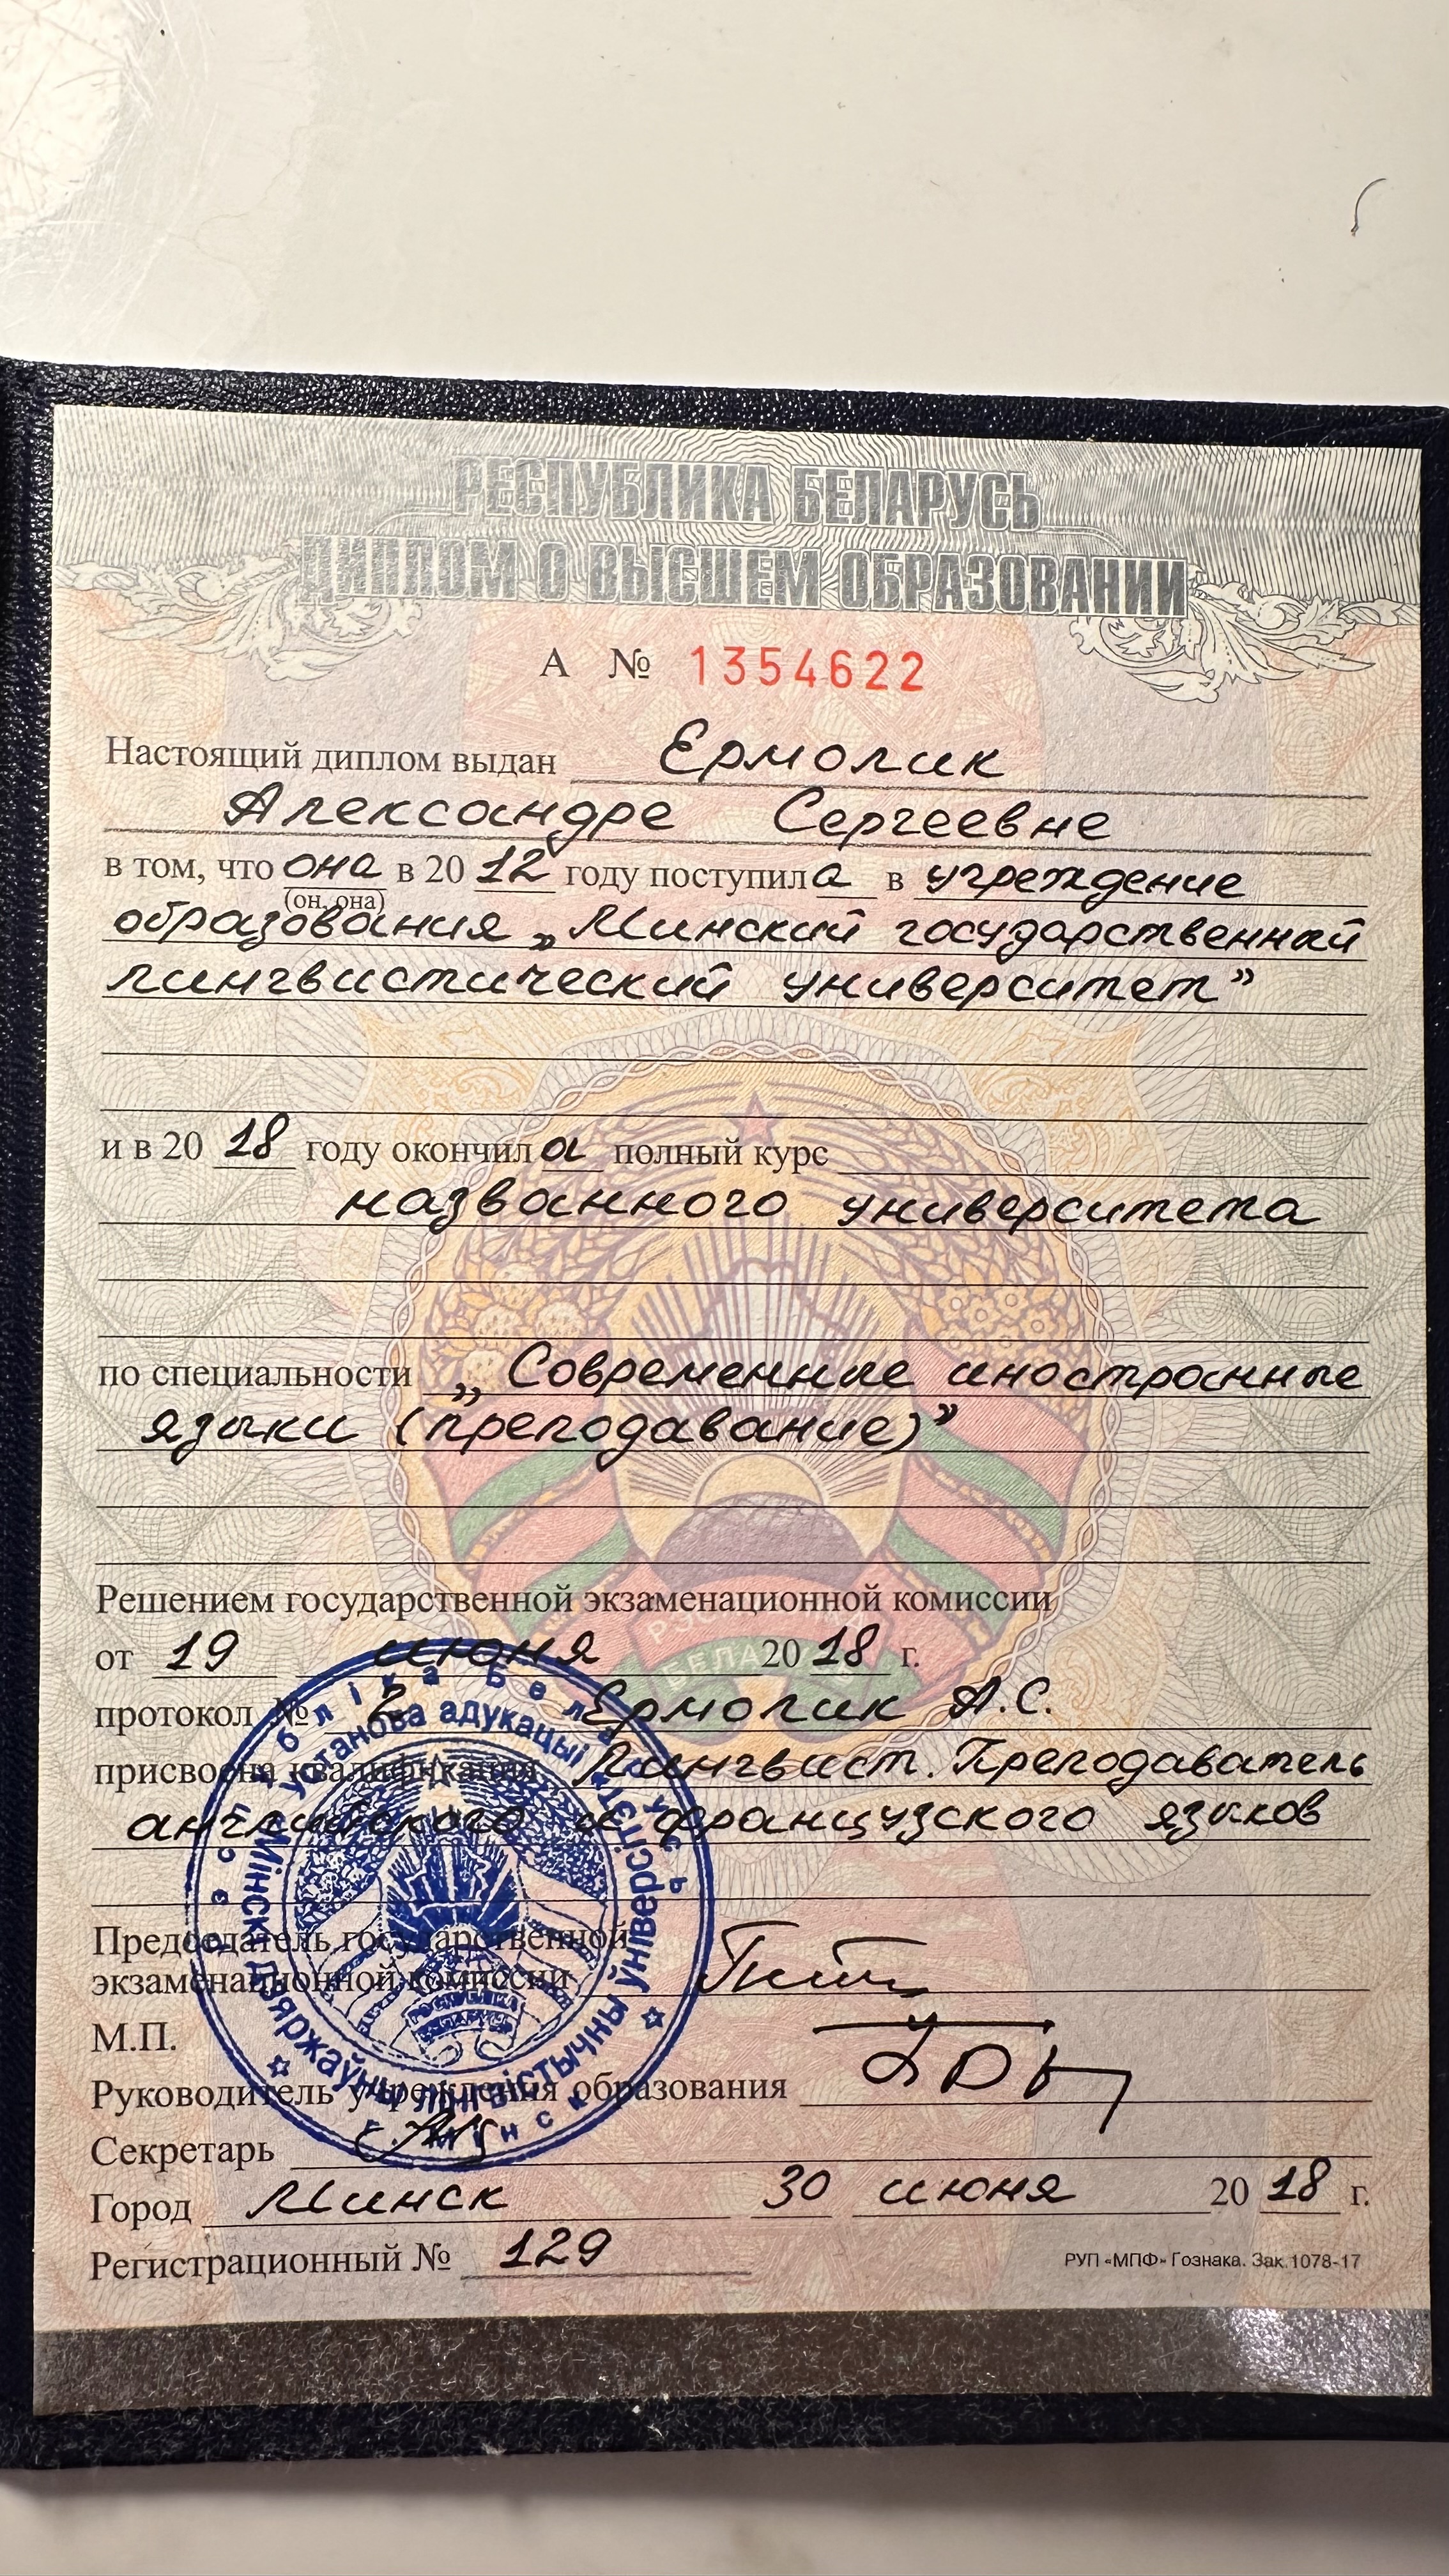 РЕСПУБЛИКА БЕЛАРУСЬ
ДИПЛОМ О ВЫСШЕМ ОБРАЗОВАНИИ
А № 1354622
Настоящий диплом выдан Ермолик
Александре Сергеевне
в том, что она в 20 12 году поступила в учреждение
(он, она)
образования „Минский государственный
лингвистический университет”
и в 20 18 году окончила полный курс
названного университета
по специальности „Современные иностранные
языки (преподавание)”
Решением государственной экзаменационной комиссии
от 19 июня 20 18 г.
протокол № 2 Ермолик А.С.
присвоена квалификация Лингвист. Преподаватель
английского и французского языков
Председатель государственной
экзаменационной комиссии
М.П.
Руководитель учреждения образования
Секретарь
Город Минск 30 июня 20 18 г.
Регистрационный № 129
РУП «МПФ» Гознака. Зак.1078-17
Рэспубліка Беларусь
Установа адукацыі
Мінскі дзяржаўны лінгвістычны ўніверсітэт
г. Мінск
РЭСПУБЛІКА
БЕЛАРУСЬ